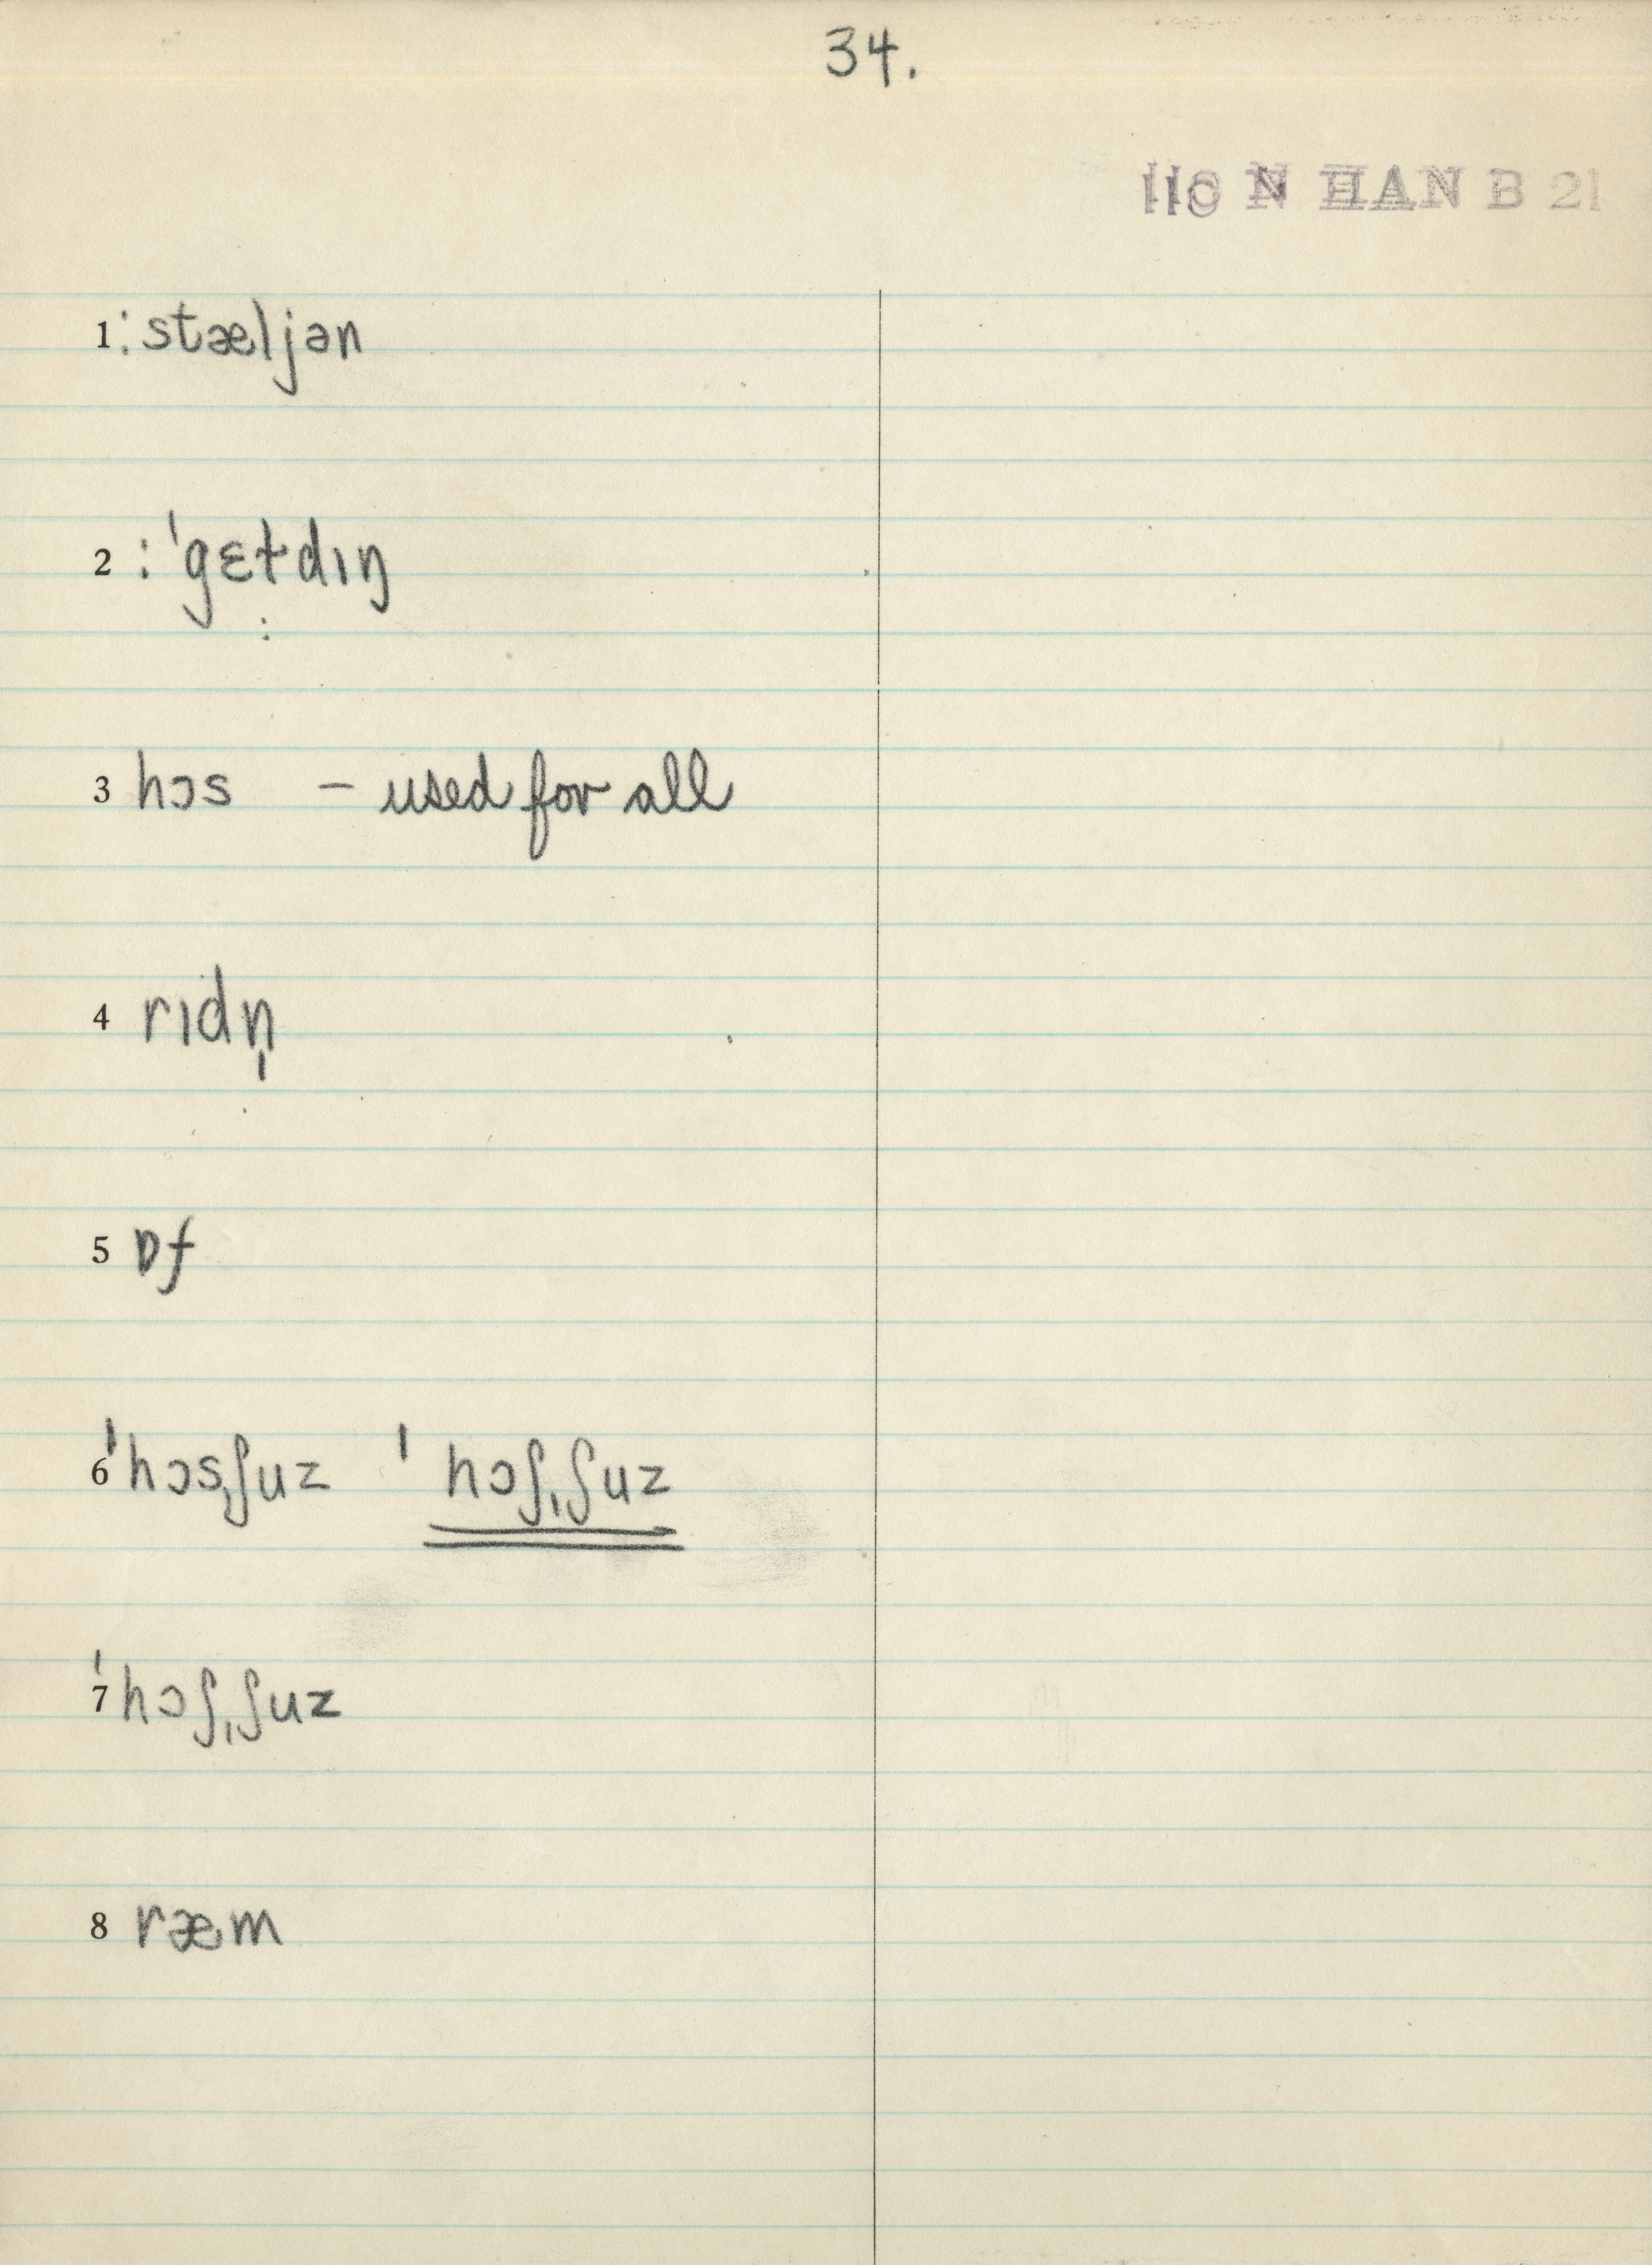 34.
110 N HAN B 21
1 : stæljən
2 : ˈgɛt̤dɪŋ
3 hɔs – used for all
4 rɪdn̩
5 ɒf
6 ˈhɔsˌʃuz ˈhɔʃˌʃuz
7 ˈhɔʃˌʃuz
8 ræm